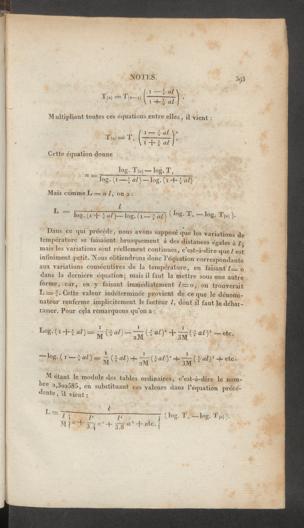 NOTES. 393
T(n) = T(n—1) ( (1 — ½ al) / (1 + ½ al) ).
Multipliant toutes ces équations entre elles, il vient :
T(n) = T, ( (1 — ½ al) / (1 + ½ al) )ⁿ
Cette équation donne
n = (log. T(n) — log. T,) / (log. (1 — ½ al) — log. (1 + ½ al))
Mais comme L = n l, on a :
L = l / (log. (1 + ½ al) — log. (1 — ½ al)) (log. T, — log. T(n)).
Dans ce qui précède, nous avons supposé que les variations de
température se faisaient brusquement à des distances égales à l;
mais les variations sont réellement continues, c'est-à-dire que l est
infiniment petit. Nous obtiendrons donc l'équation correspondante
aux variations consécutives de la température, en faisant l = o
dans la dernière équation; mais il faut la mettre sous une autre
forme, car, en y faisant immédiatement l = o, on trouverait
L = 0/0. Cette valeur indéterminée provient de ce que le dénomi-
nateur renferme implicitement le facteur l, dont il faut le débar-
rasser. Pour cela remarquons qu'on a :
Log. (1 + ½ al) = 1/M (½ al) — 1/2M (½ al)² + 1/3M (½ al)³ — etc.
— log. (1 — ½ al) = 1/M (½ al) + 1/2M (½ al)² + 1/3M (½ al)³ + etc.
M étant le module des tables ordinaires, c'est-à-dire le nom-
bre 2,302585, en substituant ces valeurs dans l'équation précé-
dente, il vient :